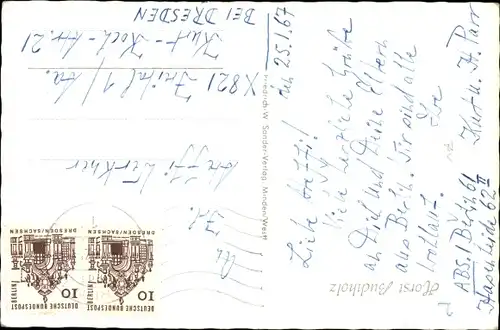 den 25.1.67
Liebe Steffi!
Viele herzliche Grüße
an Dich und Deine Eltern
aus Berlin. Wir sind alle
wohlauf.
Kurt u. H. Parr
ABS./ Berlin 61
Hasenheide 62 II
Horst Buchholz
Friedr.-W. Sander-Verlag, Minden/Westf.
An
Frl.
Steffi Werkner
X 821 Freital 1/
Kurt-Koch-Str. 21
BEI DRESDEN
10
DEUTSCHE BUNDESPOST
BERLIN
DRESDEN/SACHSEN
10
DEUTSCHE BUNDESPOST
BERLIN
DRESDEN/SACHSEN